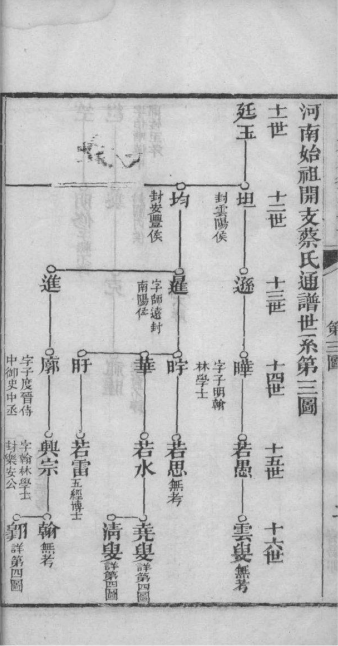 河南始祖開支蔡氏通譜世系第三圖
第三圖
十一世
十二世
十三世
十四世
十五世
十六世
廷玉
坦
封雲陽侯
遜
曄
字子明翰
林學士
若愚
雲叟
無考
均
封安豐侯
暹
字師遠封
南陽侯
若思
無考
華
若水
堯叟
詳第四圖
清叟
詳第四圖
盱
若雷
五經博士
進
廓
字子度晉侍
中御史中丞
興宗
字翰林學士
封樂安公
翰
無考
詳第四圖